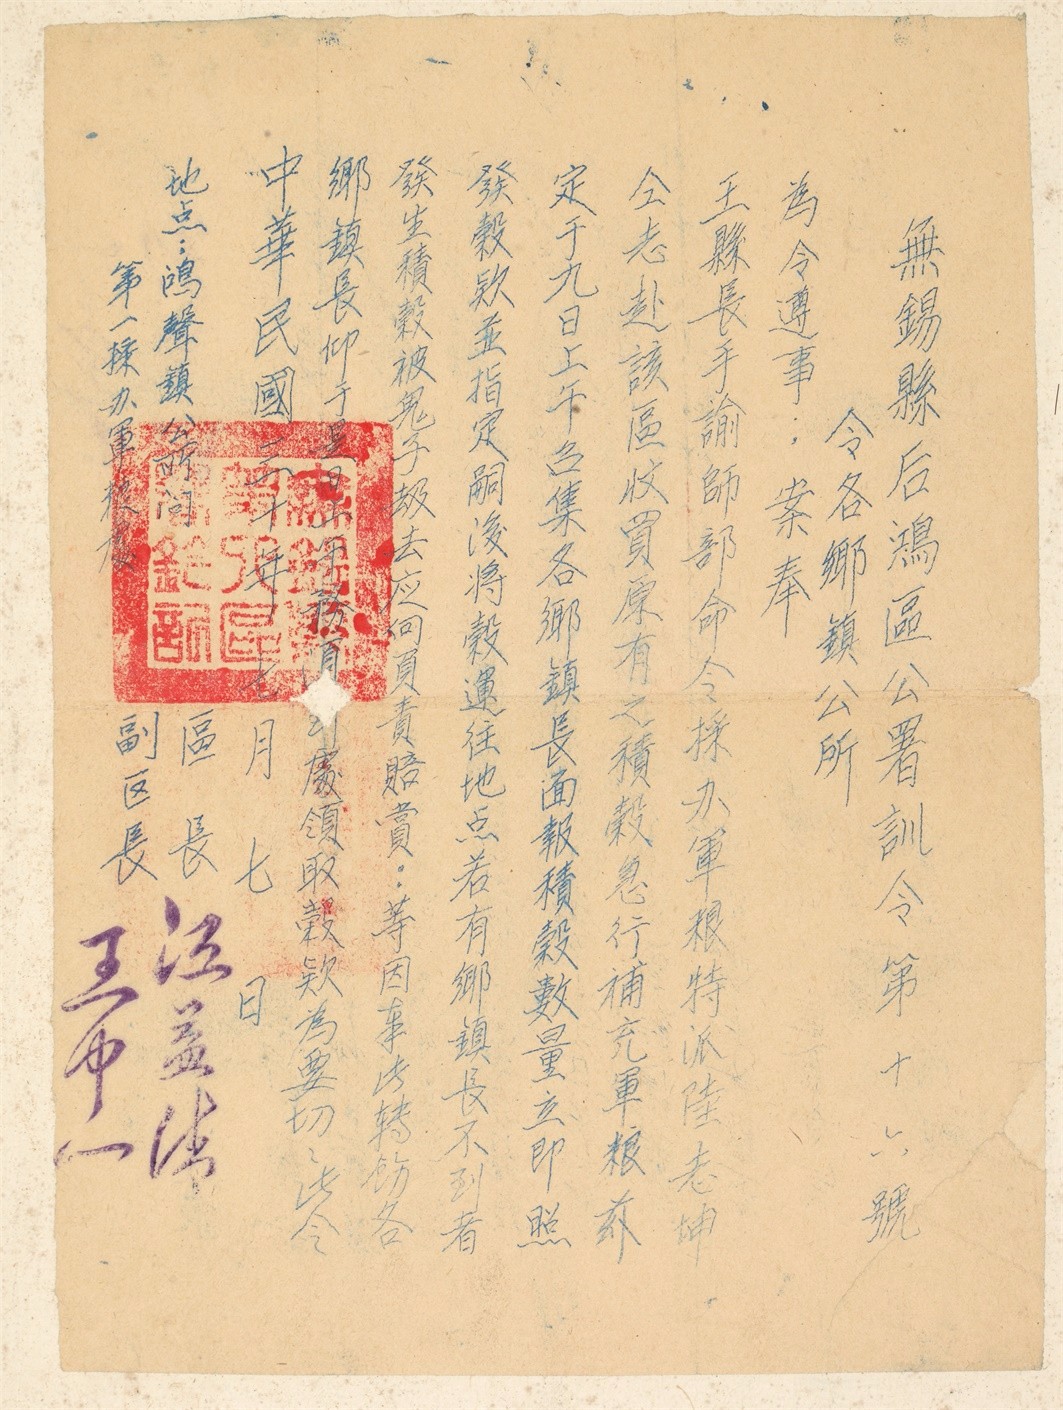 無錫縣后鴻區公署訓令第十六號
令各鄉鎮公所
為令遵事：案奉
王縣長手諭師部命令採办軍粮特派陸志坤
仝志赴該區收買原有之積穀急行補充軍粮茲
定于九日上午召集各鄉鎮長面報積穀數量立即照
發穀欵並指定嗣後將穀運往地点若有鄉鎮長不到者
發生積穀被鬼子刼去应何負責賠賞。：等因奉此轉飭各
鄉鎮長仰于是日上午務須到處領取穀欵為要切切此令
中華民國三十年七月七日
區長 江
副区長 王
地点：鴻聲鎮公所间
第一採办軍粮處